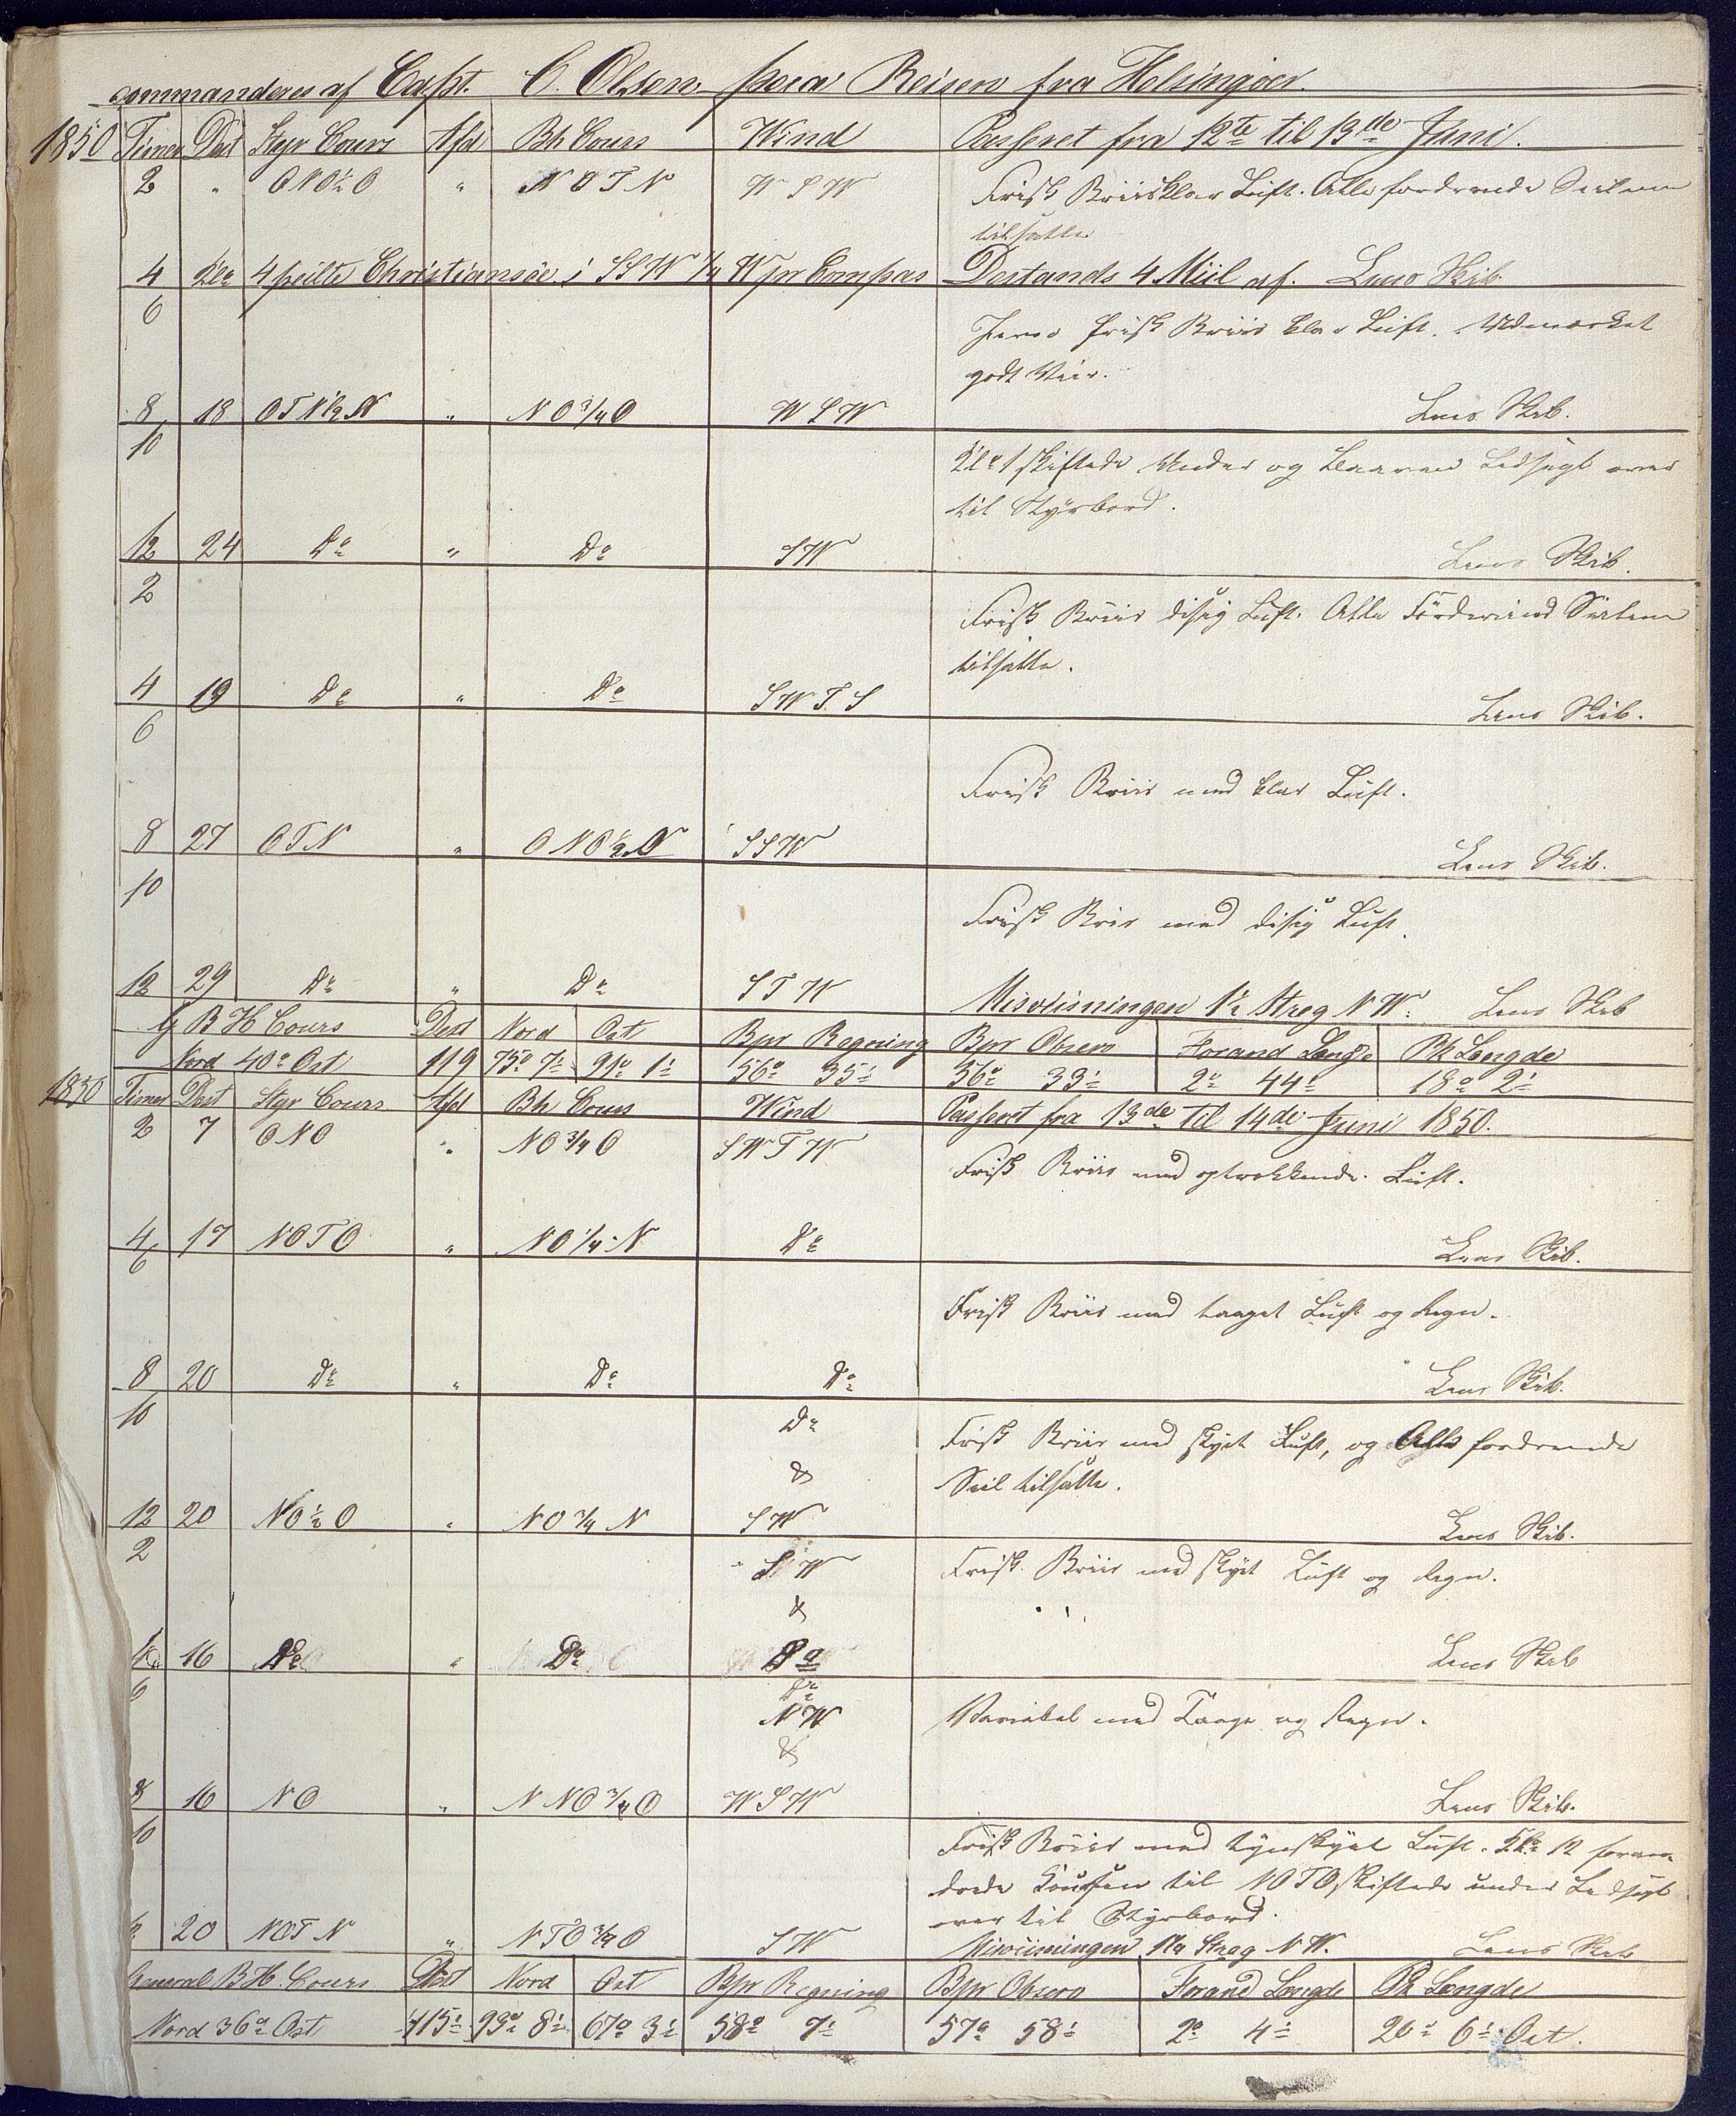 commanderes af Capt. C. Olsen paa Reisen fra Helsingöer.
1850 Timer Dist Styr Cours Afd Bh Cours Wind Passeret fra 12te til 13de Juni.
2 " ONO½O " NOTN WSW Frisk Briis klar Luft. Alle fordrende Seilene
tilsatte.
4 Kla 4 peilte Christiansöe i SSW ¼ W pr Compas Distands 4 Miil af. Lens Skib.
6 Jevn frisk Briis klar Luft. Udmærket
godt Veir.
8 18 OTN½N " NO¾O WSW Lens Skib.
10 Kl: 1 skiftede Under og Læseil over
til Styrbord.
12 24 Do " Do SW Lens Skib.
2 Frisk Briis disig Luft. Alle Seilene
tilsatte.
4 19 Do " Do SWTS Lens Skib.
6 Frisk Briis med klar Luft.
8 27 OTN " ONO½N SSW Lens Skib.
10 Frisk Briis med disig Luft.
12 29 Do " Do STW Misviisningen 1½ Streg NW. Lens Skib
G BH Cours Dist Nord Ost Bpr Regning Bpr Observ Forand Længde Pk Længde
Nord 40° Ost 119 75° 7' 91° 1' 56° 35' 56° 33' 2° 44' 18° 2'
1850 Timer Dist Styr Cours Afd Bh Cours Wind Passeret fra 13de til 14de Juni 1850.
2 7 ONO " NO¾O SWTW Frisk Briis med optrækkende Luft.
4 17 NOTO " NO¼N Do Lens Skib.
6 Frisk Briis med taaget Luft og Regn.
8 20 Do " Do Do Lens Skib.
10 Do Frisk Briis med skyet Luft, og Alle fordrende
& Seil tilsatte.
12 20 NO½O " NO¾N SW Lens Skib.
2 SW Frisk Briis med skyet Luft og Regn.
&
4 16 Do " Do Do Lens Skib
6 Do
NW Variabel med Taage og Regn.
&
8 16 NO " NNO¾O WSW Lens Skib.
10 Frisk Briis med tyndskyet Luft. Kl: 12 foran-
drede Coursen til NOTO skiftede under Læseil
over til Styrbord.
20 NOTN " NTO¾O SW Misviisningen 1¼ Streg NW. Lens Skib
General BH. Cours Dist Nord Ost Bpr Regning Bpr Observ Forand Længde Pk Længde
Nord 36° Ost 115' 93° 8' 67° 3' 58° 7' 57° 58' 2° 4' 20° 6' Ost.